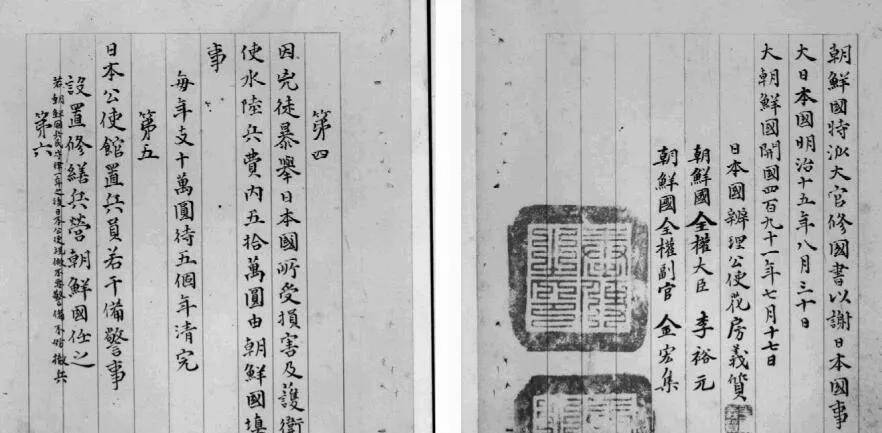 第四
因兇徒暴舉日本國所受損害及護衛
使水陸兵費内五拾萬圓由朝鮮國填
事
每年支十萬圓待五個年清完
第五
日本公使館置兵員若干備警事
設置修繕兵營朝鮮國任之
若朝鮮國兵民守律一年之後日本公使視做不要警備不妨撤兵
第六
朝鮮國特派大官修國書以謝日本國事
大日本國明治十五年八月三十日
大朝鮮國開國四百九十一年七月十七日
日本國辨理公使花房義質
朝鮮國全權大臣 李裕元
朝鮮國全權副官 金宏集